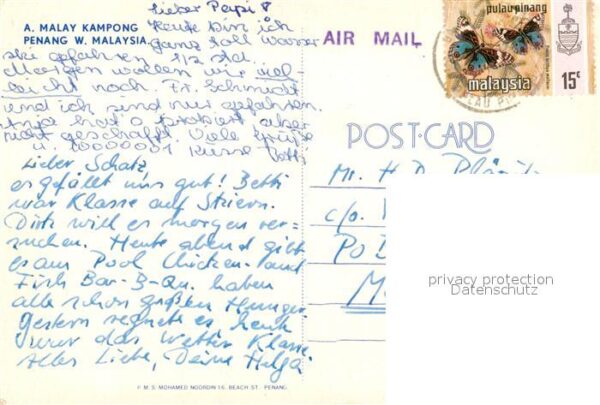 A. MALAY KAMPONG
PENANG W. MALAYSIA.
AIR MAIL
pulau pinang
malaysia
15c
POST-CARD
Lieber Papi!
Heute bin ich
ganz toll Wasser
ski gefahren 1/2 Std.
Morgen wollen wir viel-
leicht noch. Fr. Schmidt
und ich sind nur gefahren.
hat probiert aber
nicht geschafft Viele Grüße
u. 1000000 Küsse Betti
Lieber Schatz,
es gefällt uns gut! Betti
war Klasse auf Skiern.
Dirk will es morgen ver-
suchen. Heute abend gibt
es am Pool Chicken- und
Fish Bar-B-Qu. haben
alle schon großen Hunger.
Gestern regnete es, heute
war das Wetter Klasse
Alles Liebe, Deine Helga
Mr. H.
c/o.
Po
privacy protection
Datenschutz
P. M. S. MOHAMED NOORDIN 16, BEACH ST. PENANG